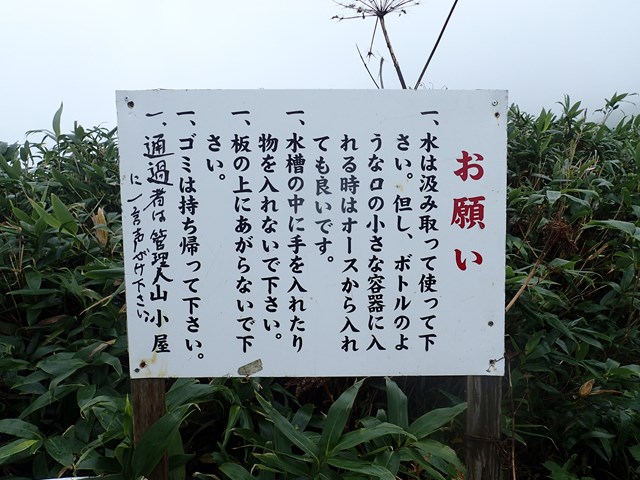 お願い
一、水は汲み取って使って下
さい。但し、ボトルのよ
うな口の小さな容器に入
れる時はオースから入れ
ても良いです。
一、水槽の中に手を入れたり
物を入れないで下さい。
一、板の上にあがらないで下
さい。
一、ゴミは持ち帰って下さい。
一、通過者は管理人山小屋
に一言声がけ下さい。